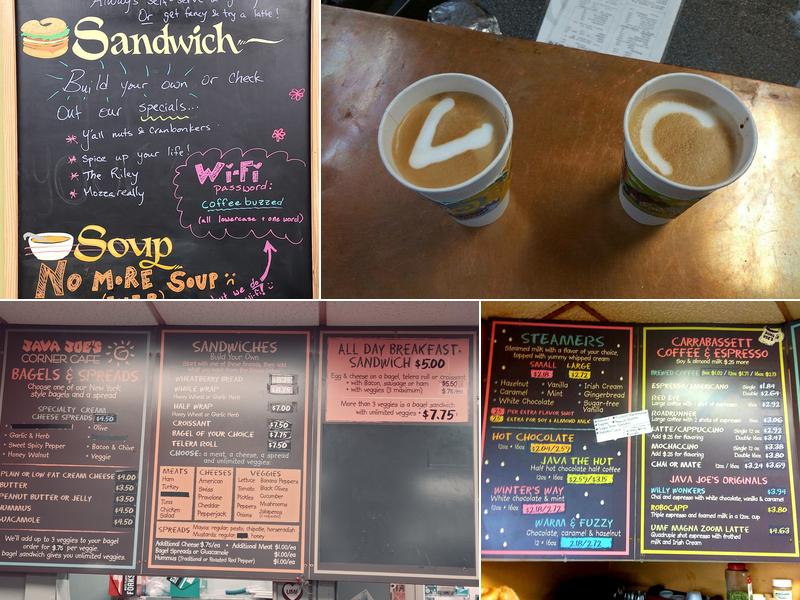 Always self-serve
Or get fancy & try a latte!
Sandwich
Build your own or check
Out our specials...
* Y'all nuts & Cranbonkers
* Spice up your life!
* The Riley
* Mozzareally
Wi-Fi
password:
coffeebuzzed
(all lowercase + one word)
Soup
NO MORE SOUP
but we do
JAVA JOE'S
CORNER CAFE
BAGELS & SPREADS
Choose one of our New York
style bagels and a spread
SPECIALTY CREAM
CHEESE SPREADS $4.50
• Olive
• Garlic & Herb
• Sweet Spicy Pepper
• Bacon & Chive
• Honey Walnut
• Veggie
PLAIN OR LOW FAT CREAM CHEESE $4.00
BUTTER $3.50
PEANUT BUTTER OR JELLY $3.50
HUMMUS $4.50
GUACAMOLE $4.50
We'll add up to 3 veggies to your bagel
order for $.75 per veggie.
bagel sandwich gives you unlimited veggies.
SANDWICHES
Build Your Own
WHEATBERRY BREAD
WHOLE WRAP
Honey Wheat or Garlic Herb
HALF WRAP $7.00
Honey Wheat or Garlic Herb
CROISSANT $7.50
BAGEL OF YOUR CHOICE $7.75
TELERA ROLL $7.50
CHOOSE: a meat, a cheese, a spread
and unlimited veggies.
MEATS
Ham
Turkey
Tuna
Chicken
Salad
CHEESES
American
Swiss
Provolone
Cheddar
Pepperjack
VEGGIES
Lettuce
Tomato
Pickles
Peppers
Onions
Banana Peppers
Black Olives
Cucumber
Mushrooms
Jalapenos
SPREADS Mayo: regular, pesto, chipotle, horseradish
Mustards: regular honey
Additional Cheese $.75/ea • Additional Meat $1.00/ea
Bagel Spreads or Guacamole $1.00/ea
Hummus (Traditional or Roasted Red Pepper) $1.00/ea
ALL DAY BREAKFAST
SANDWICH $5.00
Egg & cheese on a bagel, telera roll or croissant
• with Bacon, sausage or ham $5.50
• with veggies (3 maximum)
More than 3 veggies is a bagel sandwich
with unlimited veggies • $7.75
STEAMERS
Steamed milk with a flavor of your choice,
topped with yummy whipped cream
SMALL LARGE
$2.18 $2.72
• Hazelnut
• Caramel
• White Chocolate
• Vanilla
• Mint
• Irish Cream
• Gingerbread
• Sugar-free
Vanilla
PER EXTRA FLAVOR SHOT
EXTRA FOR SOY & ALMOND MILK
HOT CHOCOLATE
12oz • 16oz $2.04/2.59
JAVA THE HUT
Half hot chocolate half coffee
12oz • 16oz $2.59/$3.15
WINTER'S WAY
White chocolate & mint
12oz • 16oz $2.18/2.72
WARM & FUZZY
Chocolate, caramel & hazelnut
12 • 16oz 2.18/2.72
CARRABASSETT
COFFEE & ESPRESSO
Soy & almond milk $.25 more
BREWED COFFEE
ESPRESSO/AMERICANO Single $1.84
Double $2.64
RED EYE $2.92
Large coffee with 1 shot of espresso
ROADRUNNER $3.06
Large coffee with 2 shots of espresso
LATTE/CAPPUCCINO Single 12 oz $2.92
Add $.25 for flavoring Double 16oz $3.47
MOCHACCINO Single 12 oz $3.38
Add $.25 for flavoring Double 16oz $3.80
CHAI OR MATE 12oz / 16oz $3.24 $3.69
JAVA JOE'S ORIGINALS
WILLY WONKERS $3.94
Chai and espresso with white chocolate, vanilla & caramel
ROBOCAPP $3.80
Triple espresso and foamed milk in a 12oz. cup
UMF MAGNA ZOOM LATTE $4.63
Quadruple shot espresso with frothed
milk and Irish Cream
UMF